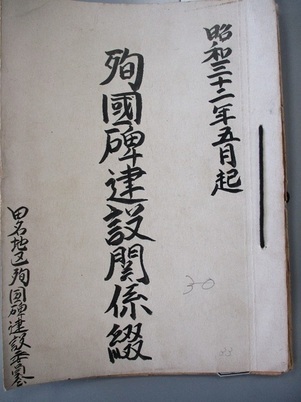 昭和三十二年五月起
殉國碑建設関係綴
田名地区殉国碑建設委員会
30